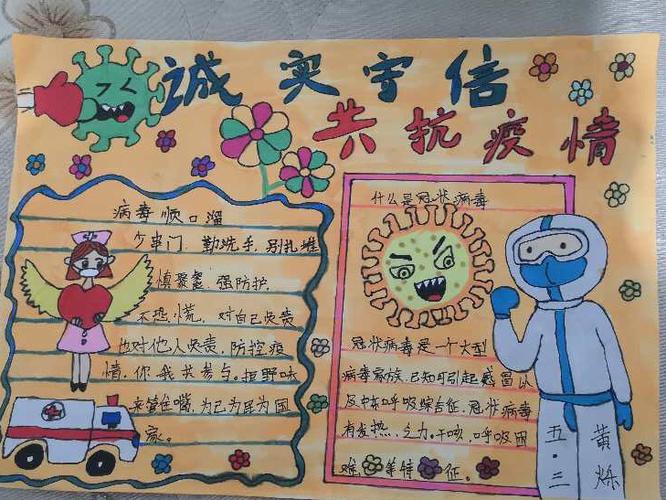 诚实守信
共抗疫情
病毒顺口溜
少串门 勤洗手,别扎堆
慎聚餐 强防护,
不恐慌,对自己负责
也对他人负责,防控疫
情,你我共参与。拒野味
来管住嘴,为己为民为国
家。
什么是冠状病毒
冠状病毒是一个大型
病毒家族,已知可引起感冒以
及中东呼吸综合征。冠状病毒
有发热、乏力、干咳、呼吸困
难、等特征。
五.三
黄烁